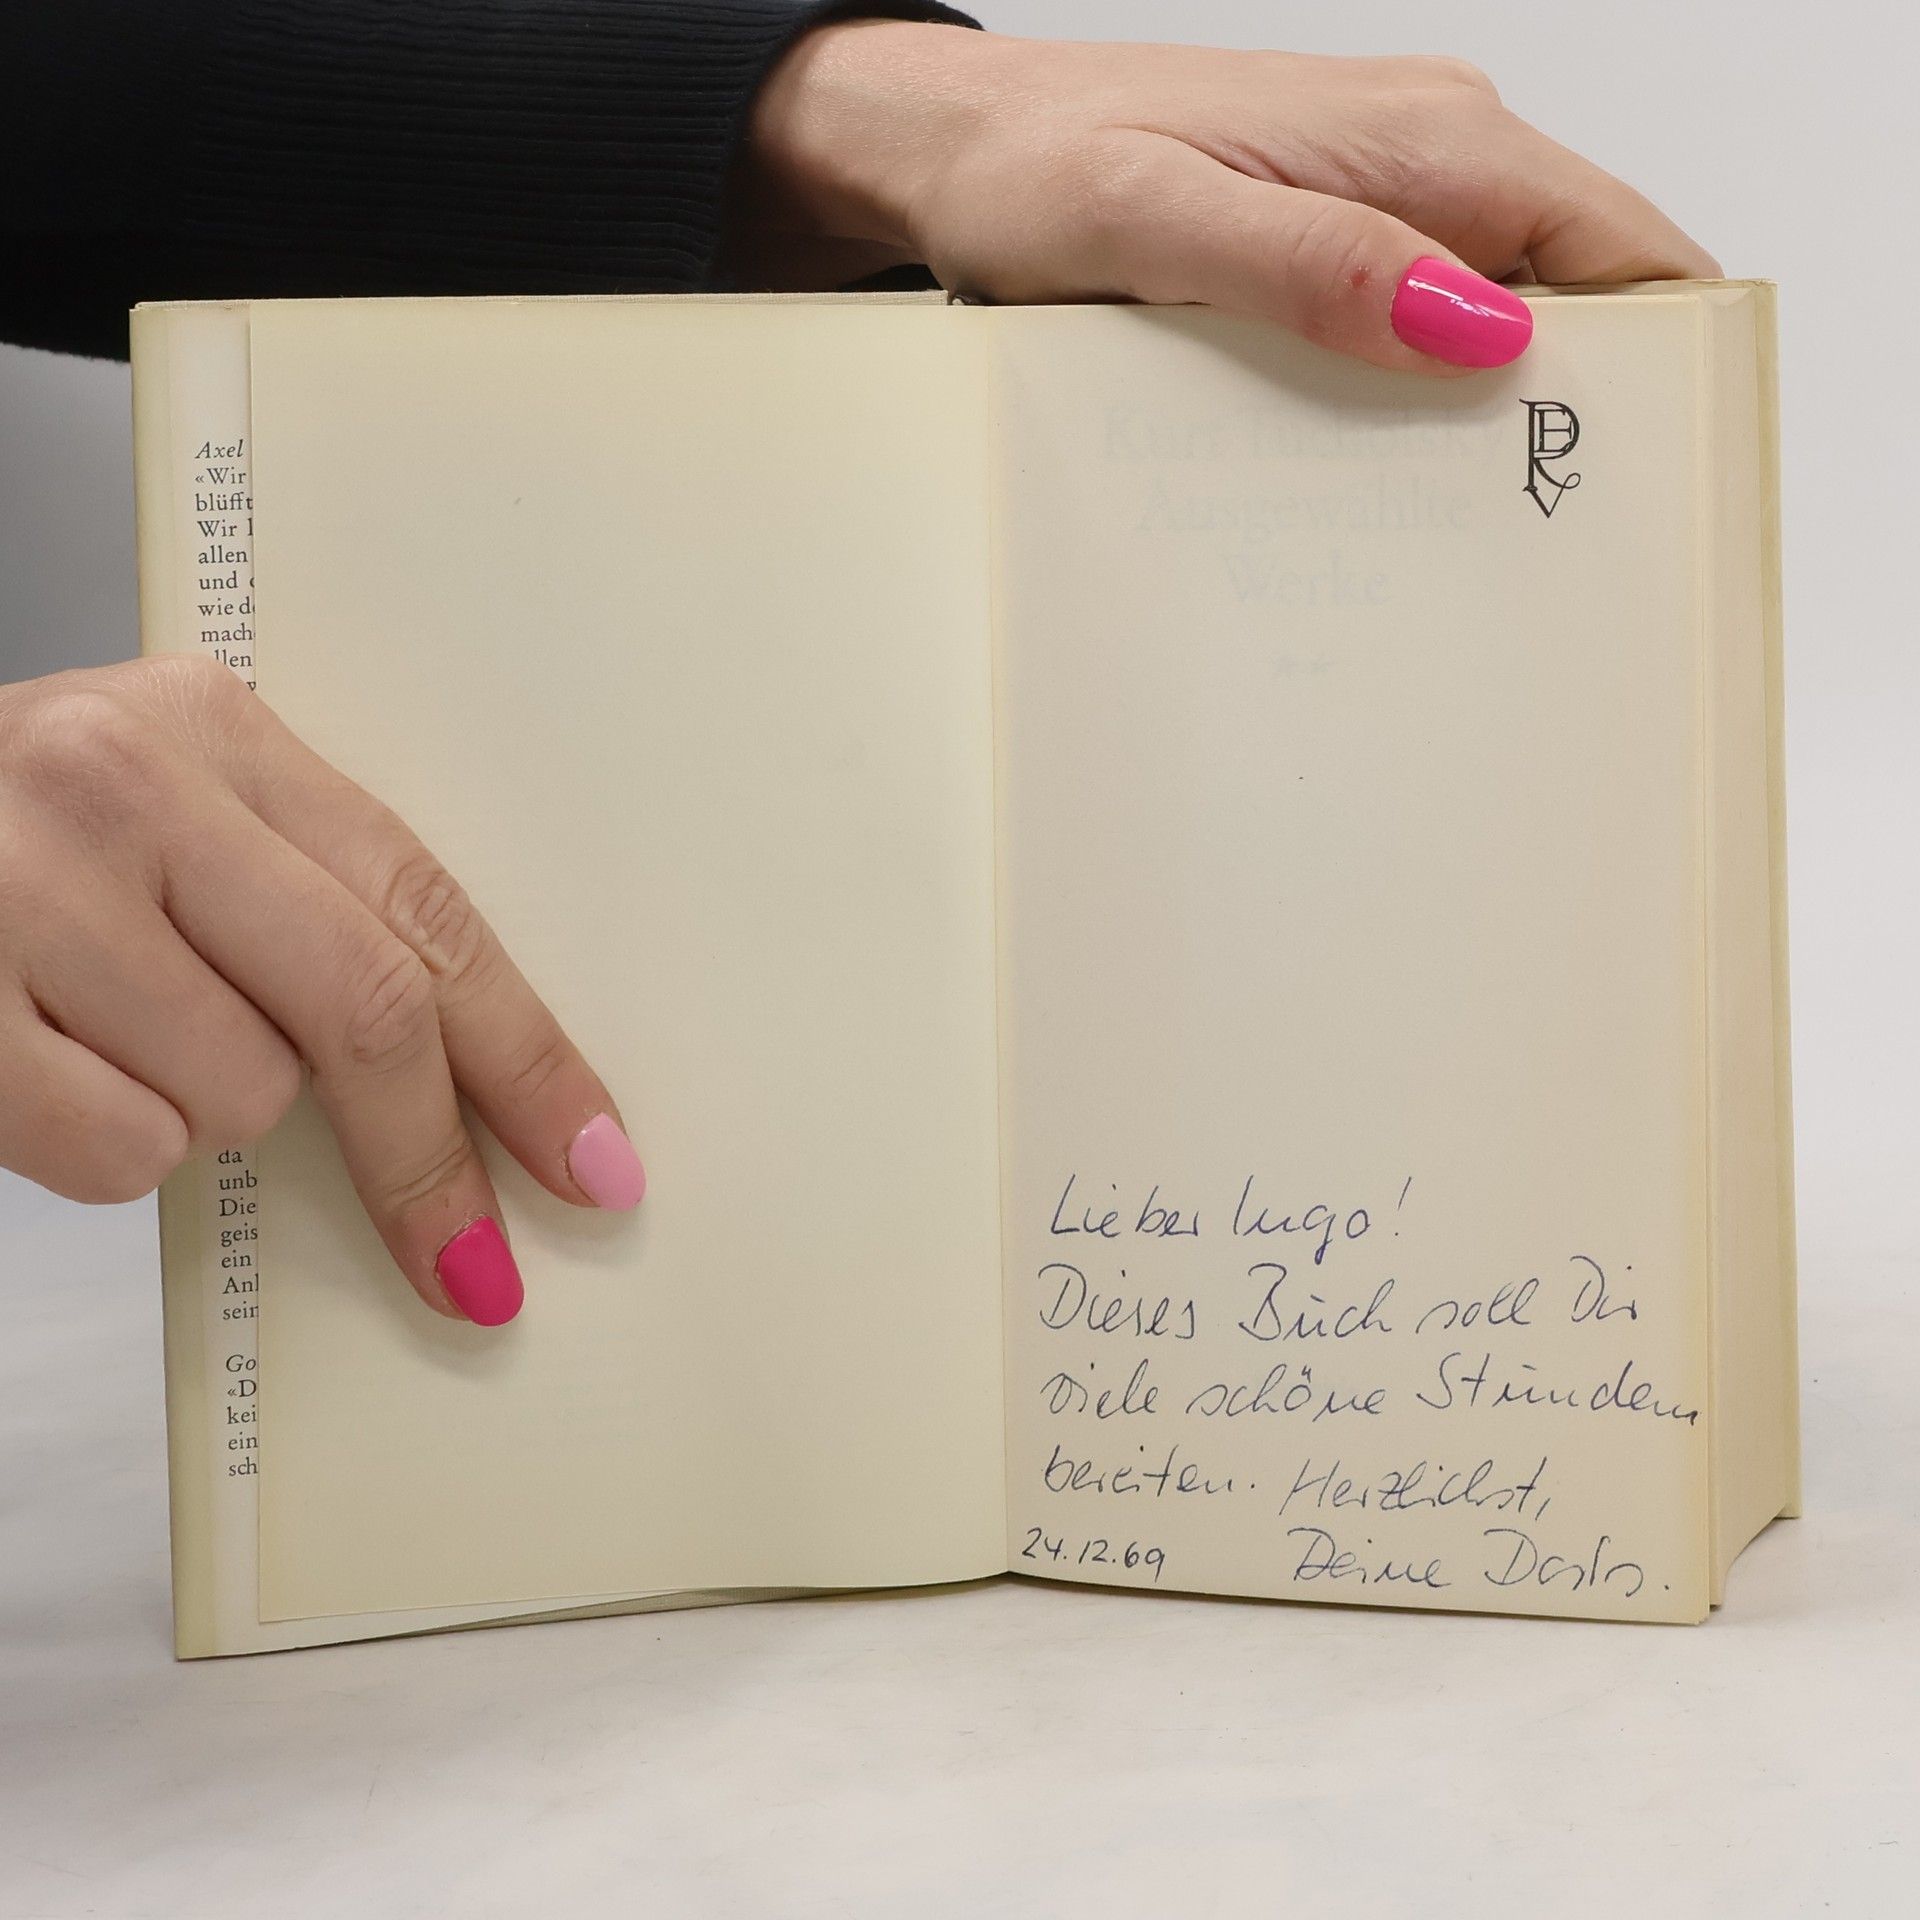 Axel
«Wir
blüfft
Wir
allen
und
wie
mach
llen
da
unb
Die
geis
ein
Anl
sein
Go
«D
kei
ein
sch
REV
Kurt Tucholsky
Ausgewählte
Werke
**
Lieber Ingo!
Dieses Buch soll Dir
viele schöne Stunden
bereiten. Herzlichst,
24.12.69 Deine